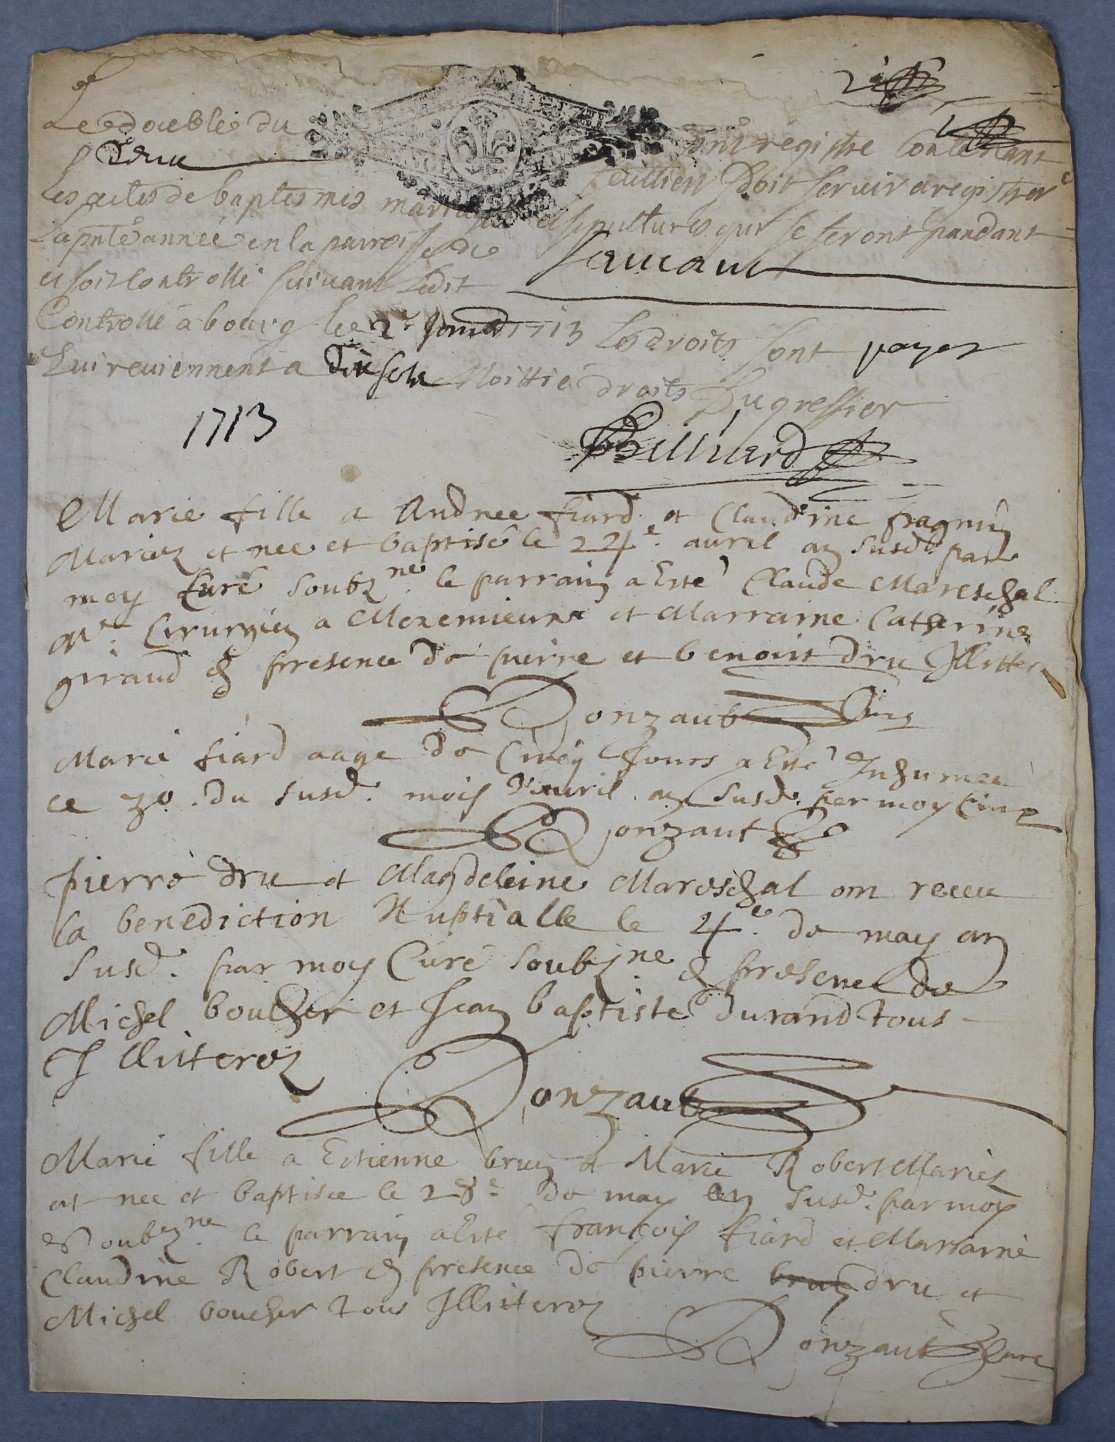 Le double du present registre Contenant
deux feuillets Doit servir a registrer
Les actes de baptesmes mariages et sepultures qui se feront pandant
La pnte année en la parroisse de Saucaut
et soit Controllé suivant L'edit
Controllé a bourg le 2e 1713 Les droits sont payez
Lui reviennent a dix sols Moittié droits Du greffier
1713
Billiard
Marie fille a Andree fiard et Claudine fragnin
Mariez et nee et baptisé le 24e. avril an susd. par
moy Curé soubzne. le parrain a Esté Claude Mareschal
Me. Cirurgien a Meximieux et Marraine Catherine
giraud en presence de pierre et benoist dru Illitterez
Donzaub Curé
Marie fiard aage de Cinq Jours a Esté Inhumee
ce 30. du susd. mois d'avril an susd. per moy Curé
Donzaut
pierre dru et Magdeleine Mareschal on receu
la benediction Nuptialle le 4e. de may an
susd. par moy Curé soubzne en presence de
Michel boucher et Jean baptiste durand tous
Illitterez
Donzaub
Marie fille a Estienne brun et Marie Robert Mariez
et nee et baptisee le 28e de may an susd. par moy
soubzne. le parrain a Esté françois fiard et Marraine
Claudine Robert en presence de pierre brun dru et
Michel boucher tous Illitterez
Donzaut Curé